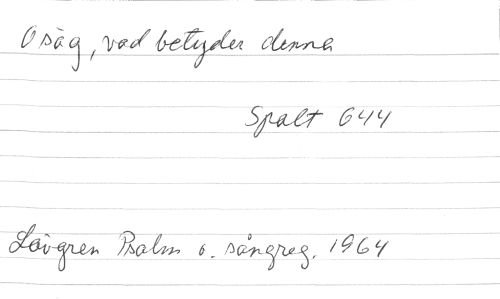 O säg, vad betyder denna
Spalt 644
Lövgren Psalm o. sångreg. 1964